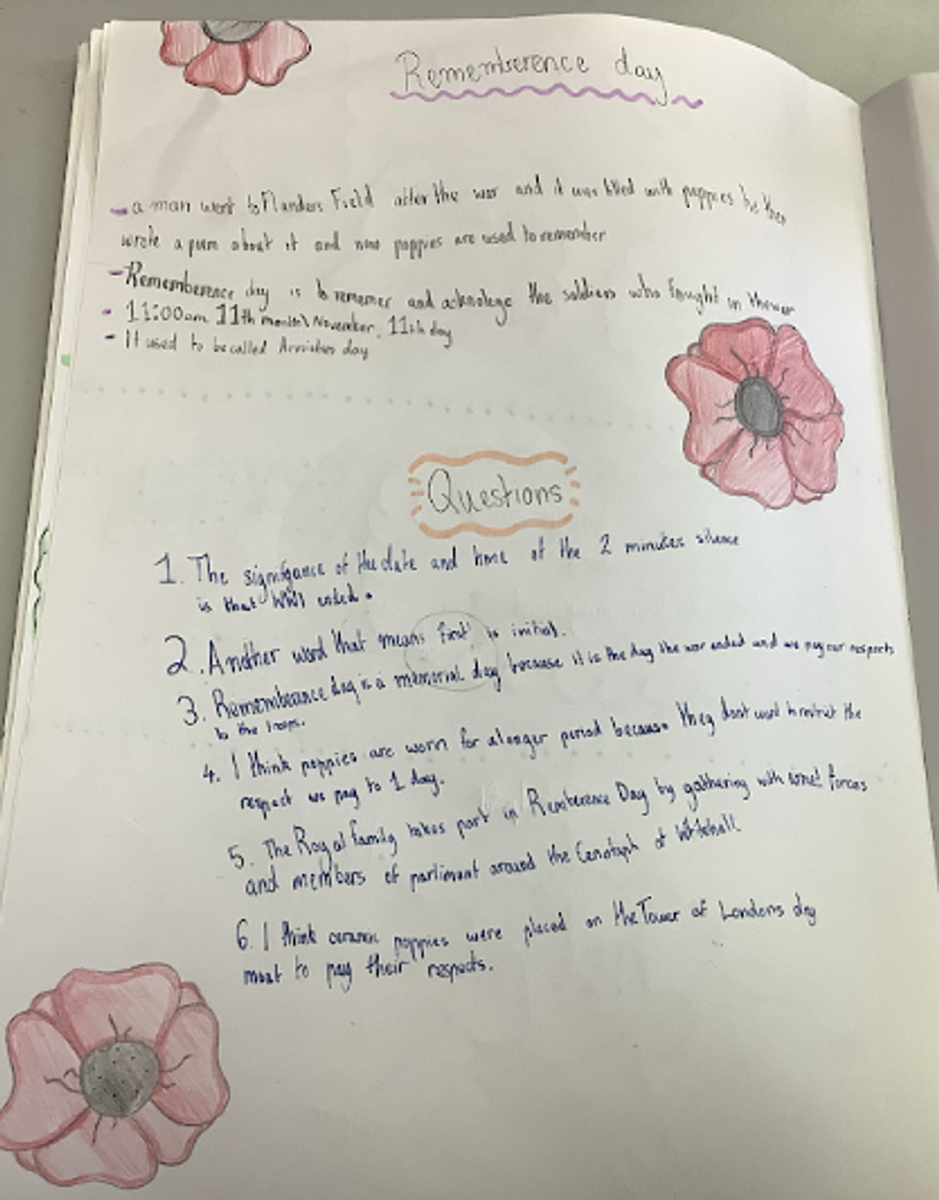 Rememberence day
- a man went to Flanders Field after the war and it was filled with poppies he then
wrote a poem about it and now poppies are used to remember
- Rememberence day is to rememer and acknolege the soldiers who fought in the war
- 11:00am 11th month\November, 11th day
- It used to be called Armisties day
Questions
1. The signifigance of the date and time of the 2 minutes silence
is that WW1 ended.
2. Another word that means 'first' is initial.
3. Rememberance day is a memorial day because it is the day the war ended and we pay our respects
to the troops.
4. I think poppies are worn for a longer period because they dont want to restrict the
respect we pay to 1 day.
5. The Royal family takes part in Remberence Day by gathering with armed forces
and members of parliment around the Cenotaph at Whitehall.
6. I think ceramic poppies were placed on the Tower of Londons dry
moat to pay their respects.